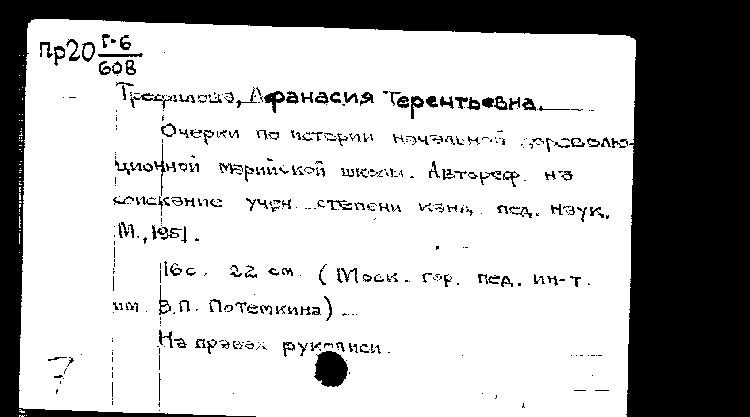 Пр20 Г-6/608
Трефилова, Афанасия Терентьевна.
Очерки по истории начальной дореволю-
ционной марийской школы. Автореф. на
соискание учен. степени канд. пед. наук.
М., 1951.
16 с. 22 см. (Моск. гор. пед. ин-т.
им. В.П. Потемкина)
На правах рукописи.
7